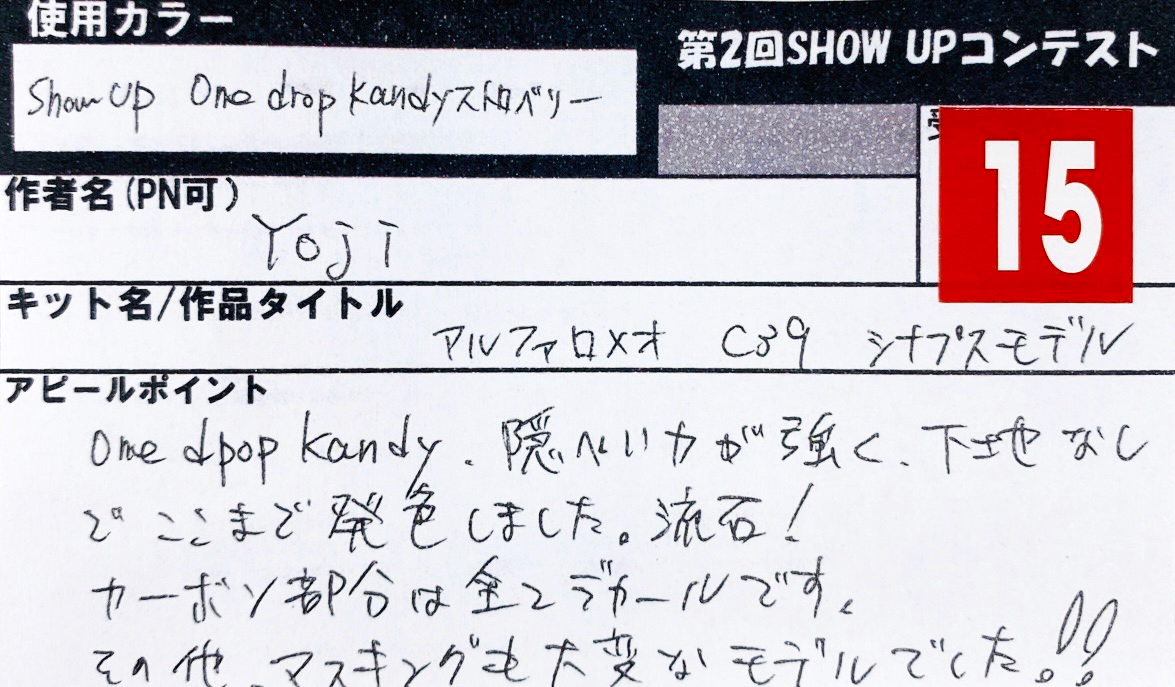 使用カラー
Show up One drop Kandyストロベリー
第2回SHOW UPコンテスト
15
作者名(PN可)
Yoji
キット名/作品タイトル
アルファロメオ C39 シナプスモデル
アピールポイント
One dpop Kandy、隠ぺい力が強く、下地なし
でここまで発色しました。流石!
カーボン部分は全てデカールです。
その他、マスキングも大変なモデルでした!!